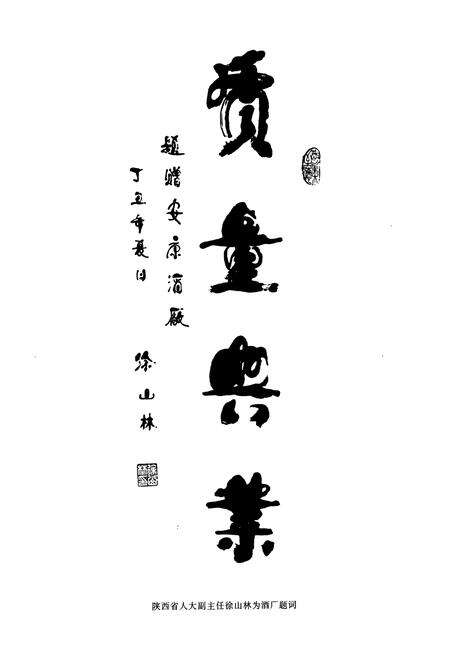 质量兴业
题赠安康酒厰
丁丑年夏日
徐山林
陕西省人大副主任徐山林为酒厂题词